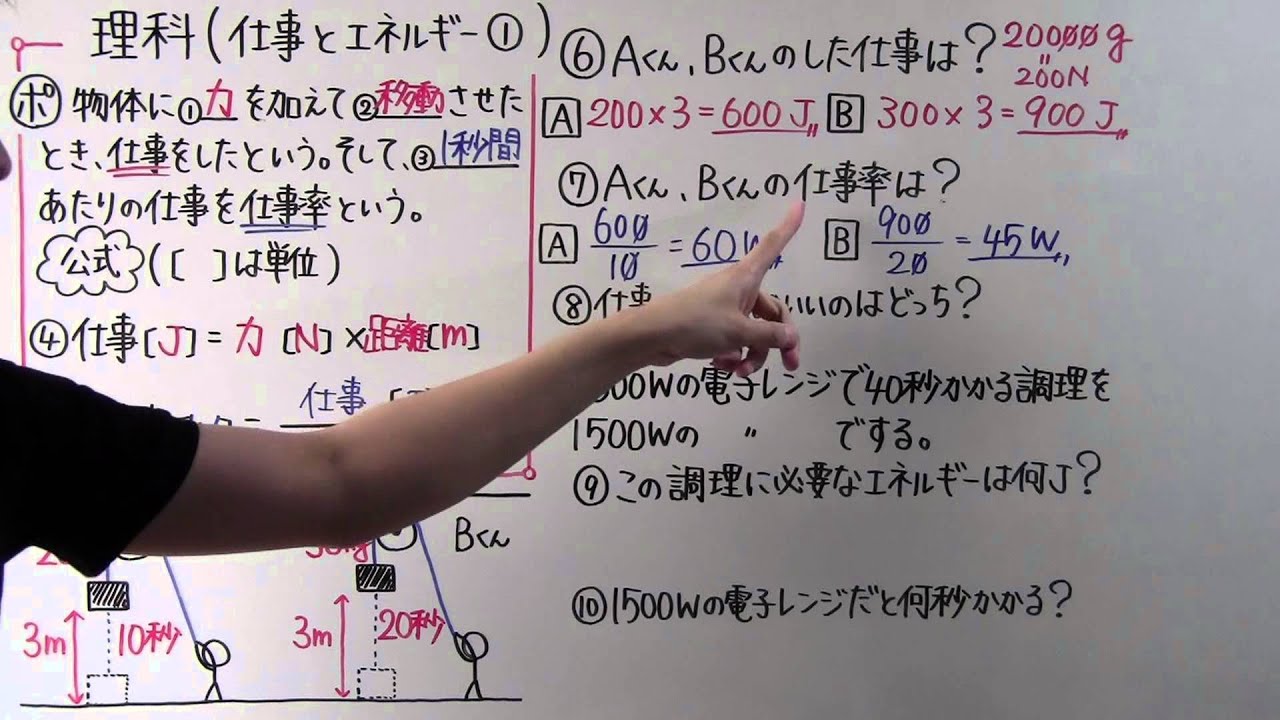 理科(仕事とエネルギー①)
ポ 物体に①力を加えて②移動させた
とき、仕事をしたという。そして、③1秒間
あたりの仕事を仕事率という。
公式([ ]は単位)
④仕事[J]=力[N]×距離[m]
仕事
Bくん
3m 10秒
3m 20秒
⑥Aくん、Bくんのした仕事は?
20000g
"
200N
A 200×3=600J〃 B 300×3=900J〃
⑦Aくん、Bくんの仕事率は?
A 600/10=60W〃 B 900/20=45W〃
⑧仕事 いいのはどっち?
00Wの電子レンジで40秒かかる調理を
1500Wの 〃 でする。
⑨この調理に必要なエネルギーは何J?
⑩1500Wの電子レンジだと何秒かかる?